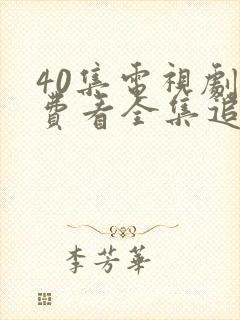 40集電視劇
費看全集追
李芳華